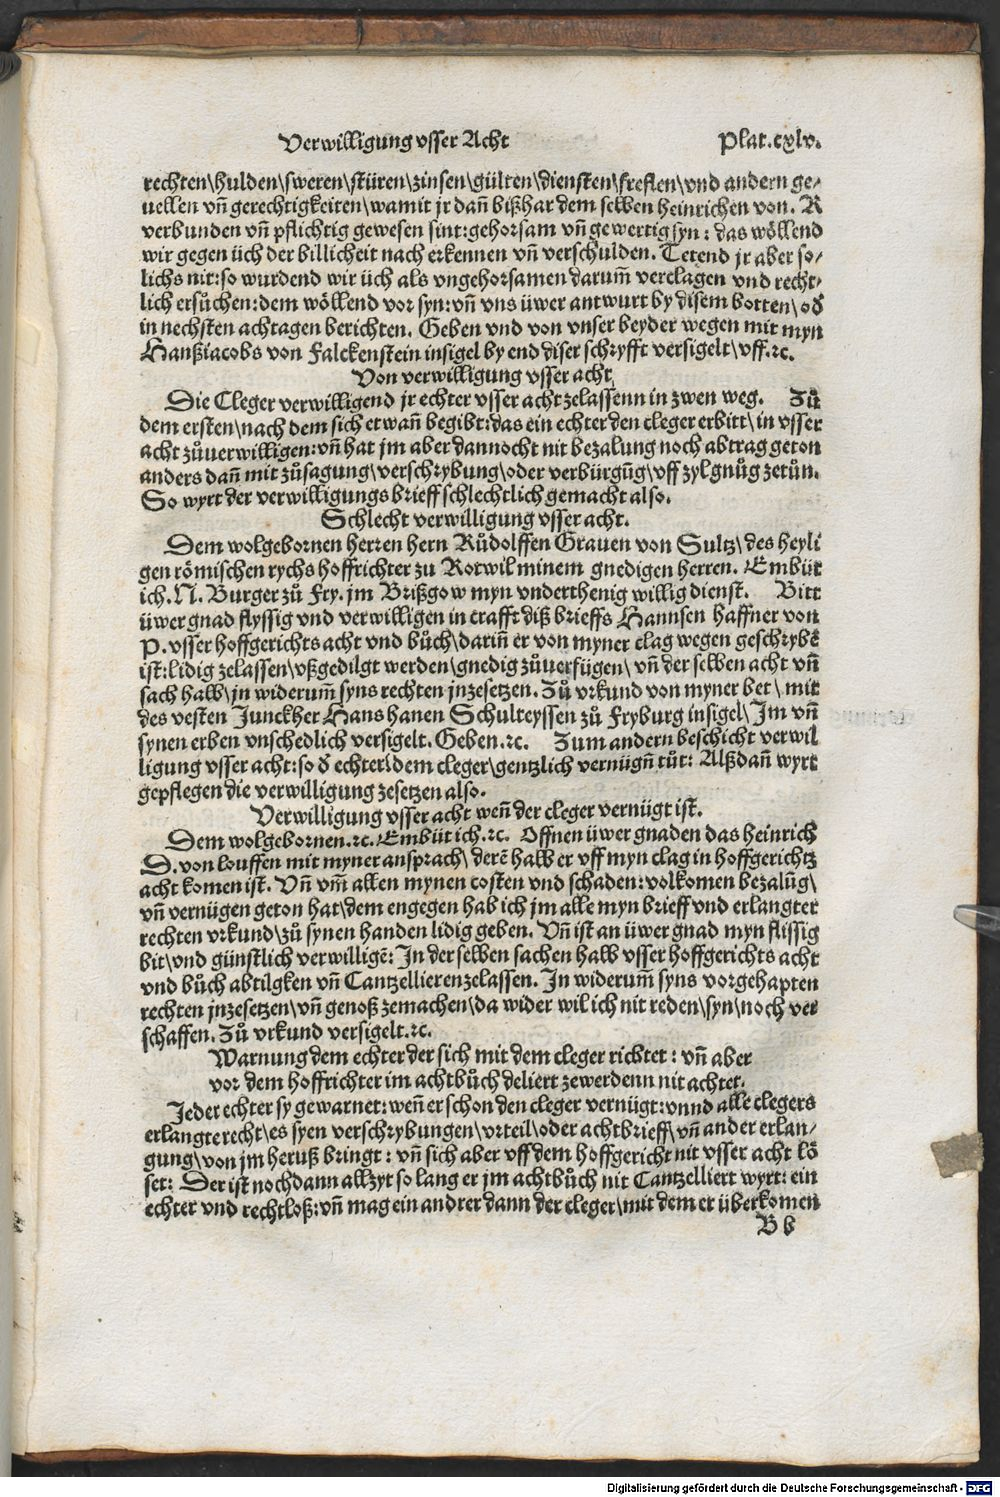 Verwilligung vsser Acht Plat.cxlv.
rechten\hulden\sweren\stüren\zinsen\gülten\diensten\freflen\vnd andern ge⸗
uellen vñ gerechtigkeiten\wamit jr dañ bißhar dem selben heinrichen von. R
verbunden vñ pflichtig gewesen sint:gehorsam vñ gewertig syn: das wöllend
wir gegen üch der billicheit nach erkennen vñ verschulden. Tetend jr aber so⸗
lichs nit:so wurdend wir üch als vngehorsamen darum̃ verclagen vnd recht⸗
lich ersůchen:dem wöllend vor syn:vñ vns üwer antwurt by disem botten\od̕
in nechsten achtagen berichten. Geben vnd von vnser beyder wegen mit myn
Hanßiacobs von Falckenstein insigel by end diser schryfft versigelt\vff.ꝛc.
Von verwilligung vsser acht
Die Cleger verwilligend jr echter vsser acht zelassenn in zwen weg. Zů
dem ersten\nach dem sich etwañ begibt:das ein echter den cleger erbitt\in vsser
acht zůuerwilligen:vñ hat jm aber dannocht nit bezalung noch abtrag geton
anders dañ mit zůsagung\verschrybung\oder verbürgũg\vff zyl gnůg zetůn.
So wyrt der verwilligungs brieff schlechtlich gemacht also.
Schlecht verwilligung vsser acht.
Dem wolgebornen herren hern Růdolffen Grauen von Sultz\des heyli
gen römischen rychs hoffrichter zu Rotwil minem gnedigen herren. Embüt
ich. N. Burger zů Fry. jm Brißgow myn vnderthenig willig dienst. Bitt
üwer gnad flyssig vnd verwilligen in crafft diß brieffs Hannsen haffner von
P. vsser hoffgerichts acht vnd bůch\dariñ er von myner clag wegen geschrybẽ
ist:lidig zelassen\vßgedilgt werden\gnedig zůuerfügen\ vñ der selben acht vñ
sach halb\jn widerum̃ syns rechten jnzesetzen. Zů vrkund von myner bet\ mit
des vesten Junckher Hans hanen Schulteyssen zů Fryburg insigel\Im vñ
synen erben vnschedlich versigelt. Geben.ꝛc. Zum andern beschicht verwil
ligung vsser acht:so d̕ echter\dem cleger\gentzlich vernügũ tůt: Alßdañ wyrt
gepflegen die verwilligung zesetzen also.
Verwilligung vsser acht weñ der cleger vernügt ist.
Dem wolgebornen.ꝛc. Embüt ich.ꝛc. Offnen üwer gnaden das heinrich
D. von louffen mit myner ansprach\ derẽ halb er vff myn clag in hoffgerichtz
acht komen ist. Vñ vm̃ allen mynen costen vnd schaden:volkomen bezalũg\
vñ vernügen geton hat\dem engegen hab ich jm alle myn brieff vnd erlangter
rechten vrkund\zů synen handen lidig geben. Vñ ist an üwer gnad myn flissig
bit\vnd günstlich verwilligẽ: In der selben sachen halb vsser hoffgerichts acht
vnd bůch abtilgken vñ Cantzellieren zelassen. In widerum̃ syns vorgehapten
rechten jnzesetzen\vñ genoß zemachen\da wider wil ich nit reden\syn\noch ver
schaffen. Zů vrkund versigelt.ꝛc.
Warnung dem echter der sich mit dem cleger richtet: vñ aber
vor dem hoffrichter im achtbůch deliert zewerdenn nit achtet.
Jeder echter sy gewarnet:weñ er schon den cleger vernügt:vnnd alle clegers
erlangte recht\es syen verschrybungen\vrteil\oder achtbrieff\vñ ander erlan⸗
gung\von jm heruß bringt: vñ sich aber vff dem hoffgericht nit vsser acht lö
set: Der ist nochdann allzyt so lang er jm achtbůch nit Cantzelliert wyrt: ein
echter vnd rechtloß:vñ mag ein andrer dann der cleger\mit dem er überkomen
B b
Digitalisierung gefördert durch die Deutsche Forschungsgemeinschaft - DFG